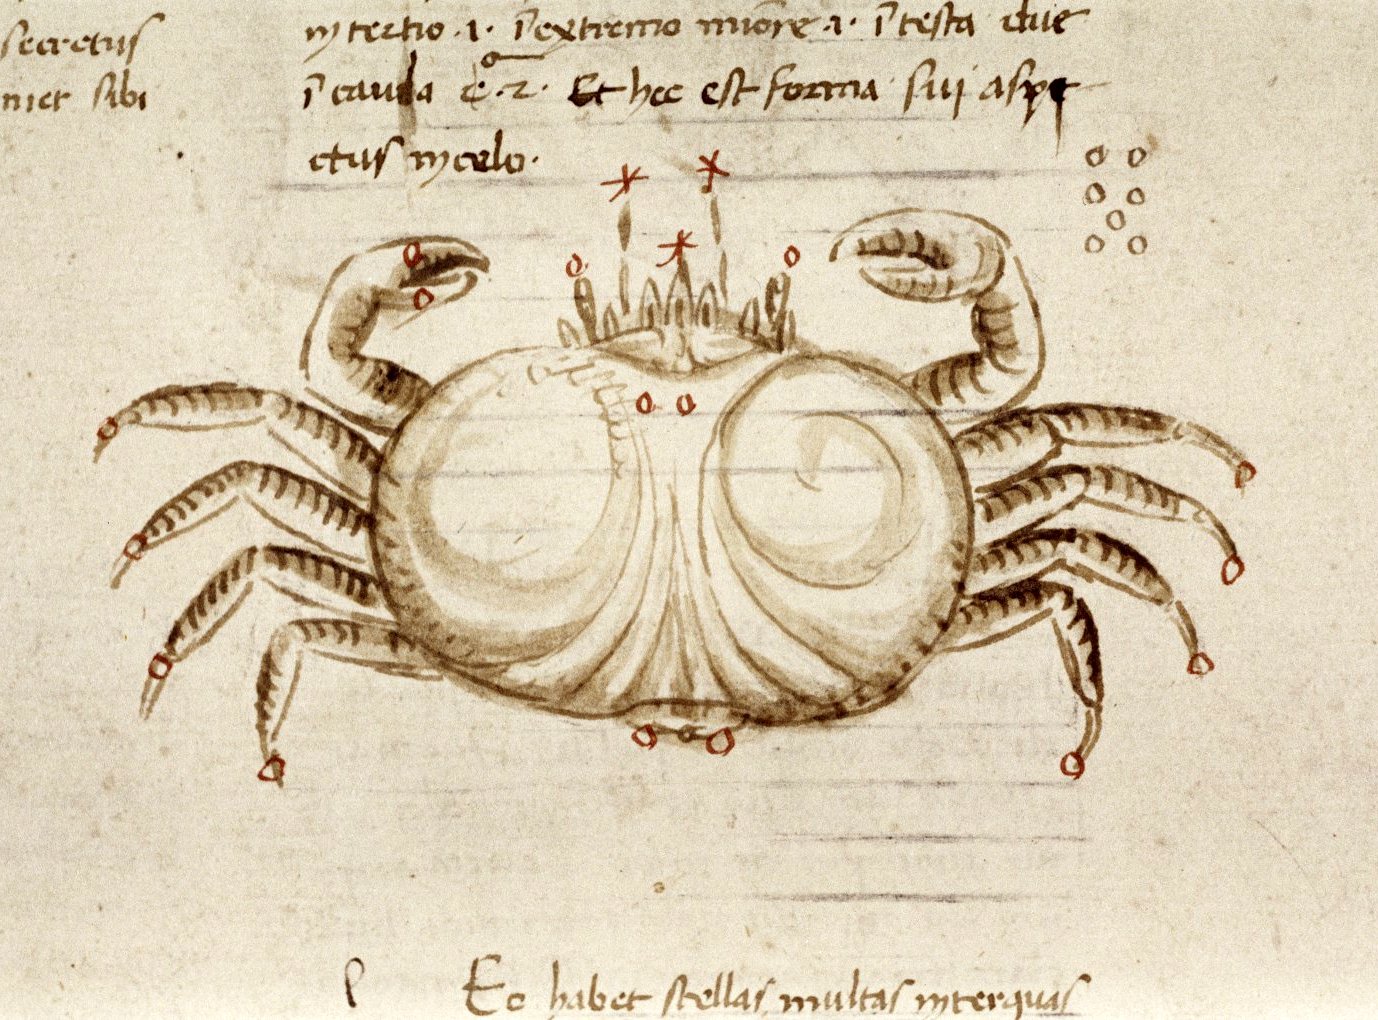 secretus
met sibi
in tertio .1. i extremo miore .1. i testa due
i cauda .2. Et hec est forma sui aspe
ctus in celo.
Eo habet stellas multas inter quas